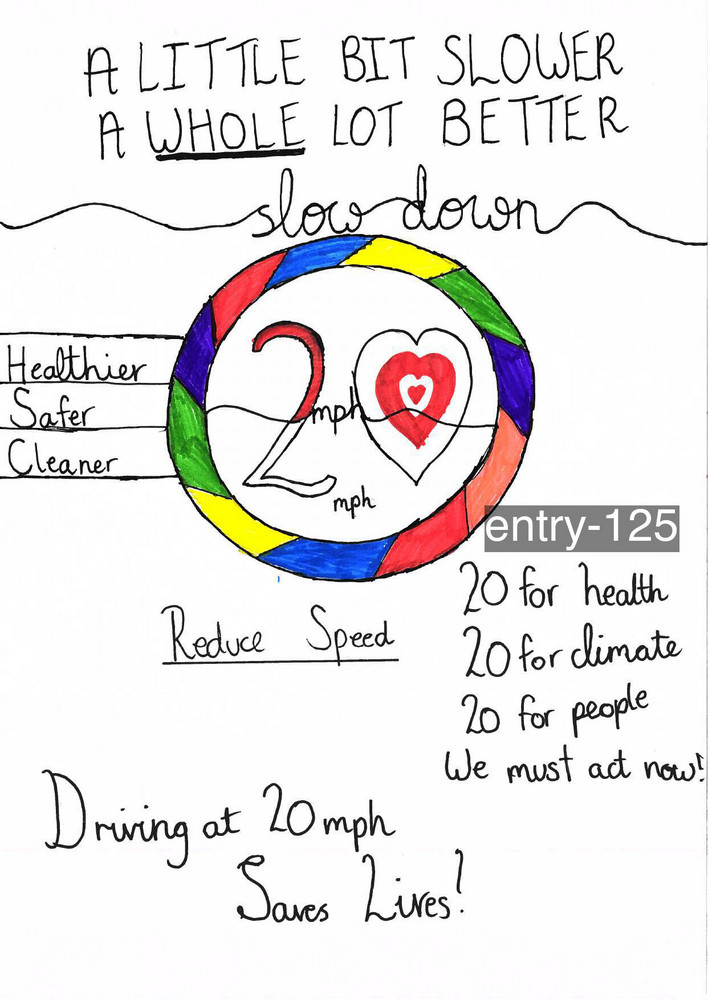 A LITTLE BIT SLOWER
A WHOLE LOT BETTER
slow down
Healthier
Safer
Cleaner
20
mph
mph
entry-125
Reduce Speed
20 for health
20 for climate
20 for people
We must act now!
Driving at 20 mph
Saves Lives!